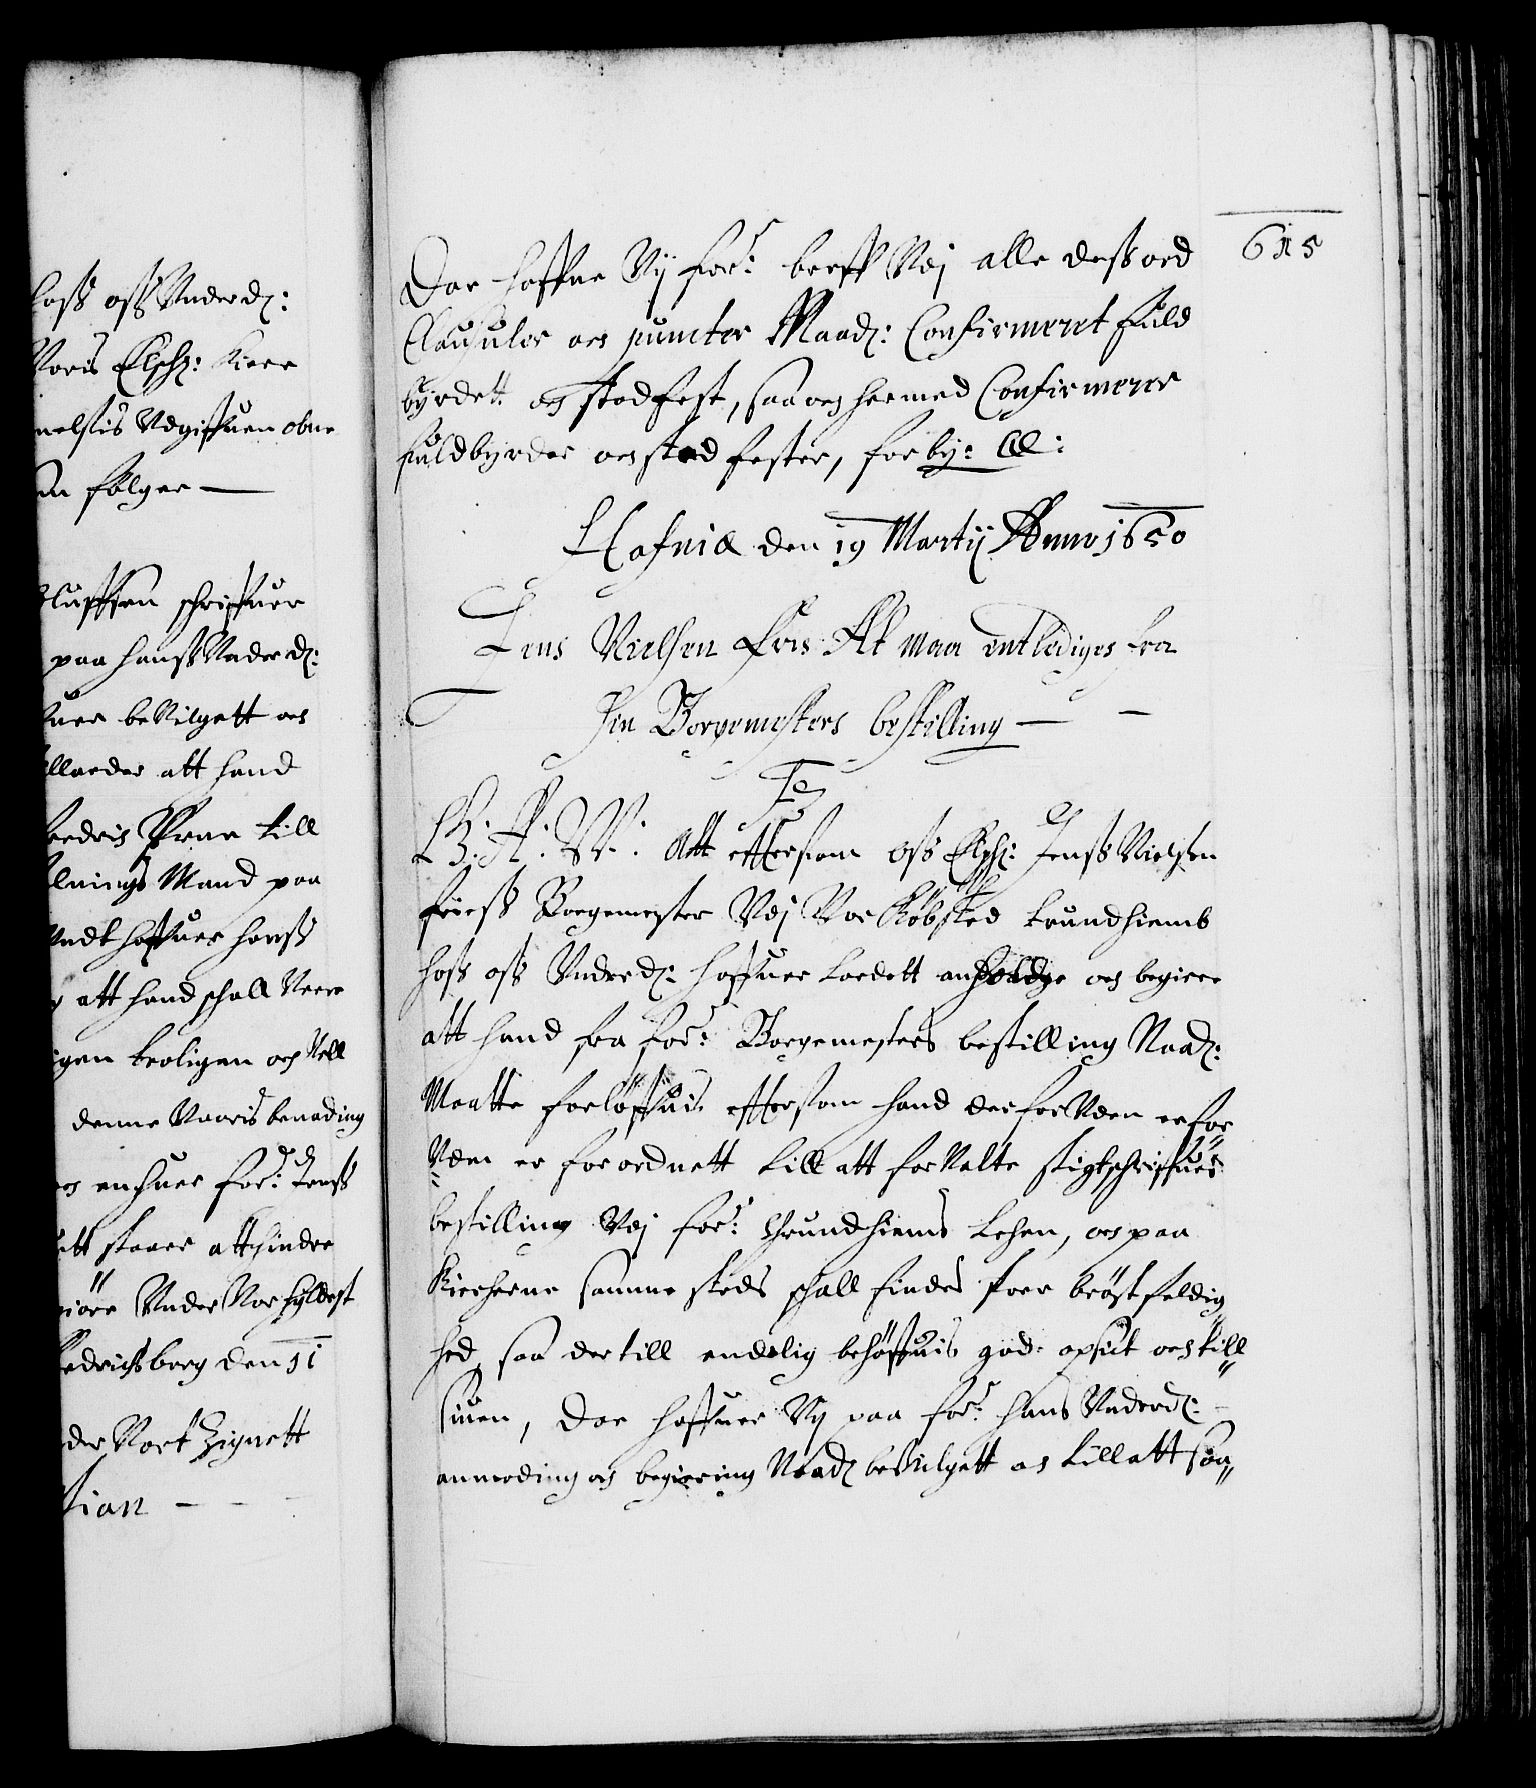 hoss oss Underd:
Voris Elsch: Kiere
melstis Udgiffuen obne
m følger —
Oluffsøn schriffuer
paa hanss Underd:
fuer beVilgett oc
tillader att hand
Fredris Prær till
lnings Mand paa
Undt haffuer hanss
att hand schall Vere
igen troligen och Vell
denne Voris benading
og enhuer for: Jenss
ett staaer atthindre
giøre Under Vor hyldest
Fredrichsborg den 11
der Vort Zignett
tian — — —
615
Dae haffue Vij for: breff Udj alle dess ord
Clausuler oc puncter Naad: Confirmeret fuld
byrdett og stadfest, saa og hermed Confirmerer
fuldbyrder oc stadfester, forby: &c:
Hafniæ den 19 Martij Anno 1650
Jens Nielsen Fris At maa entlediges fra
sin Borgemesters bestilling — —
F3
G: A: W: Att efftersom oss Elsch: Jenss Nielsen
friess Borgemester Udj Vor Kiöbsted Trundhiemb
hoss oss Underd: haffuer ladett anholde oc begiere
att hand fra for: Borgemesters bestilling Naad:
Maatte forløffuis efftersom hand derforUden er for
Uden er forordnett till att forValte Stigtschriffuer
bestilling Udj for: Thrundhiems Lehen, oc paa
Kircherne samme steds schall findes stoer brøstfeldig
hed, saa der till endelig behøffuis god opsict oc till
siuen, Dae haffuer Vij paa for: hans Underd:
anmoding oc begiering Naad: beVilgett oc tillatt saa